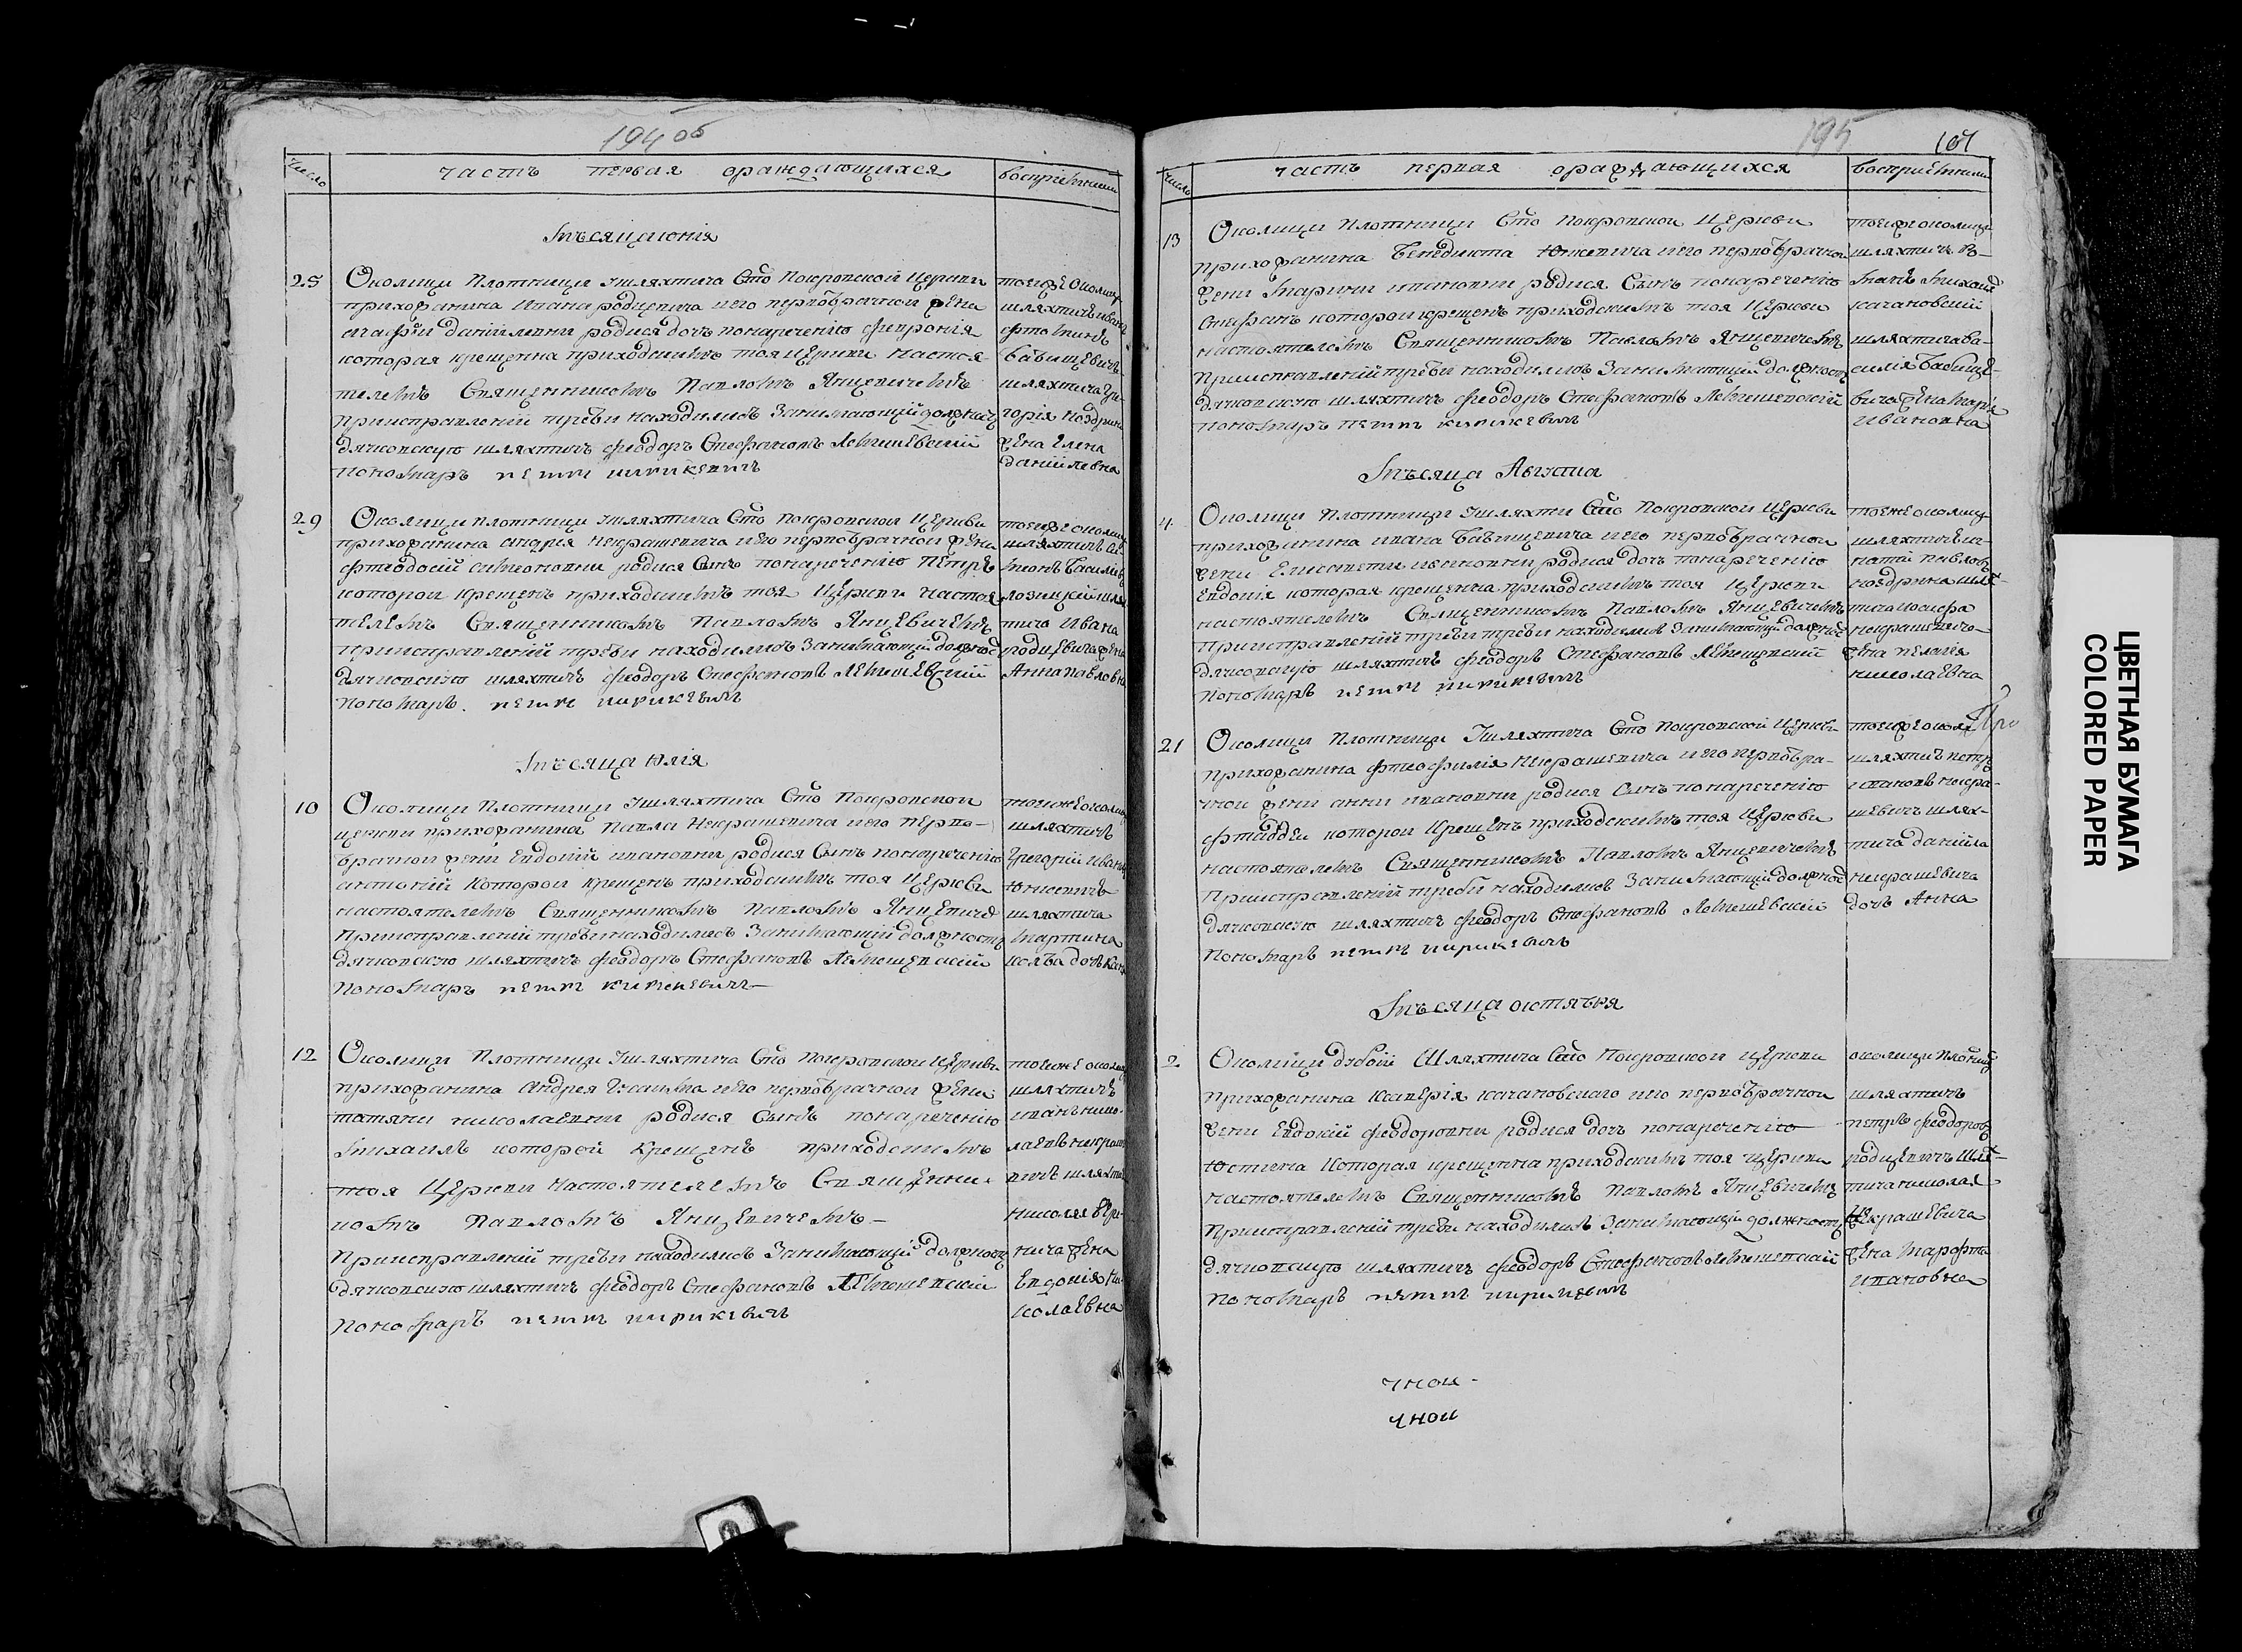 194 об
Число
часть первая ораждающихся
воспріемники
Мѣсяца июнія
25
Околицы Плотницы Шляхтича Сто Покровской Церкви
прихожанина Ивана родцевича иего первобрачной жены
агафіи даниилевны родися дочь понаречению февронія
которая крещенна приходскимъ тоя церкви настоя-
телемъ Священникомъ Павломъ Янцевичемъ
приисправленіи требы находились Занимающій должность
дячковскую шляхтичъ феодоръ Стефановъ Лемешевскій
пономарь петръ кирикевичъ
тоейже околицы
шляхтичъ иванъ
бабицевичъ
шляхтича гри-
горія ноздрина
жена елена
даниилевна
29
Околицы плотницы Шляхтича Сто Покровской Церкви
прихожанина андрея некрашевича иего первобрачной жены
фтеодосіи симеоновны родися Сынъ понаречению Петръ
которои крещенъ приходскимъ тоя Церкви настоя
телемъ Священникомъ Павломъ Янцевичемъ
приисправленіи требы находились Занимающій должнос
дячковскую шляхтичъ феодоръ Стефановъ Лемешевскій
пономаръ петръ кирикевичъ
тоейже околицы
шляхтичъ си
меонъ Василіевъ
лозицкій шлях
тича Ивана
родцевича жена
Анна павловна
Мѣсяца юлія
10
Околицы Плотницы Шляхтича Сто Покровской
церкви прихожанина Павла Некрашевича иего перво-
брачной жены Евдокіи ивановны родися Сынъ понаречению
антоній Которои крещенъ приходскимъ тоя Церкви
настоятелемъ Священникомъ Павломъ Янцевиче
приисправленіи требы находились Занимающій должность
дячковскую шляхтичъ феодоръ Стефановъ Лемешевскій
Пономаръ петръ кирикевичъ
тоейже околиц
шляхтичъ
Григорій Иванов
Юнсевичъ
шляхтича
мартина
12
Околицы Плотницы Шляхтича Сто Покровской Церкви
прихожанина Андрея иего первобрачной жены
татяны николаевны родися Сынъ понаречению
Михаилъ которой Крещенъ приходскимъ
тоя Церкви Настоятелемъ Священни-
комъ Павломъ Янцевичемъ
приисправленіи требы находились Занимающій должность
дячковскую шляхтичъ феодоръ Стефановъ Лемешевскій
Пономаръ петръ кирикевичъ
тоейже околиц
шляхтичъ
иванъ нико-
лаевъ некраше
вичъ шляхти
николая
нича жена
Евдокія Ни-
колаевна
195
107
Число
часть первая ораждающихся
воспріемники
13
Околицы Плотницы Сто Покровской Церкви
прихожанина Бенедикта Юнсевича иего первобрачной
жены Марины ивановны родися Сынъ понаречению
Стефанъ которои крещенъ приходскимъ тоя Церкви
настоятелемъ Священникомъ Павломъ Янцевичемъ
приисправленіи требы находились Занимающій должность
дячковскую шляхтичъ феодоръ Стефановъ Лемешевскій
пономаръ петръ кирикевичъ
тоейже околицы
шляхтичъ Ро-
манъ Михаил
качановскій
шляхтича ва-
силія бабице-
вича жена марія
Ивановна
Мѣсяца Августа
4
Околицы Плотницы Шляхти Сто Покровской Церкви
прихожанина ивана Бабицевича иего первобрачной
жены Елисавети ивановны родися дочь понаречению
Евдокія которая крещенна приходскимъ тоя Церкви
настоятелемъ Священникомъ Павломъ Янцевичемъ
приисправленіи требы требы находились Занимающій должнос
дячковскую шляхтичъ феодоръ Стефановъ Лемешевскій
пономаръ петръ кирикевичъ
тоейже околиц
шляхтичъ иг-
натій павловъ
ноздринъ шлях-
тича иосифа
некрашевича
жена пелагея
николаевна
21
Околицы Плотницы Шляхтича Сто Покровской Церкви
прихожанина фтеофилія некрашевича иего первобра-
чной жены анны ивановны родися Сынъ понаречению
фтаддеи которои Крещенъ приходскимъ тоя Церкви
настоятелемъ Священникомъ Павломъ Янцевичемъ
приисправленіи требы находились Занимающій должнос
дячковскую шляхтичъ феодоръ Стефановъ Лемешевскій
пономаръ петръ кирикевичъ
тоейже околиц
шляхтичъ петръ
некра-
шевичъ шлях-
тича даниила
некрашевича
дочь Анна
Мѣсяца октября
2
Околицы дубои Шляхтича Сто Покровской церкви
прихожанина Ксаверія качановского иего первобрачной
жены Евдокіи феодоровны родися дочь понаречению
Юстина Которая крещенна приходскимъ тоя церкви
настоятелемъ Священникомъ Павломъ Янцевичемъ
приисправленіи требы находились Занимающій должность
дячковскую шляхтичъ феодоръ Стефановъ Лемешевскій
пономаръ петръ кирикевичъ
околицы плотницы
шляхтичъ
петръ феодоровъ
родцевичъ шлях-
тича николая
Некрашевича
жена марфта
ивановна
чнои
чнои
ЦВЕТНАЯ БУМАГА
COLORED PAPER